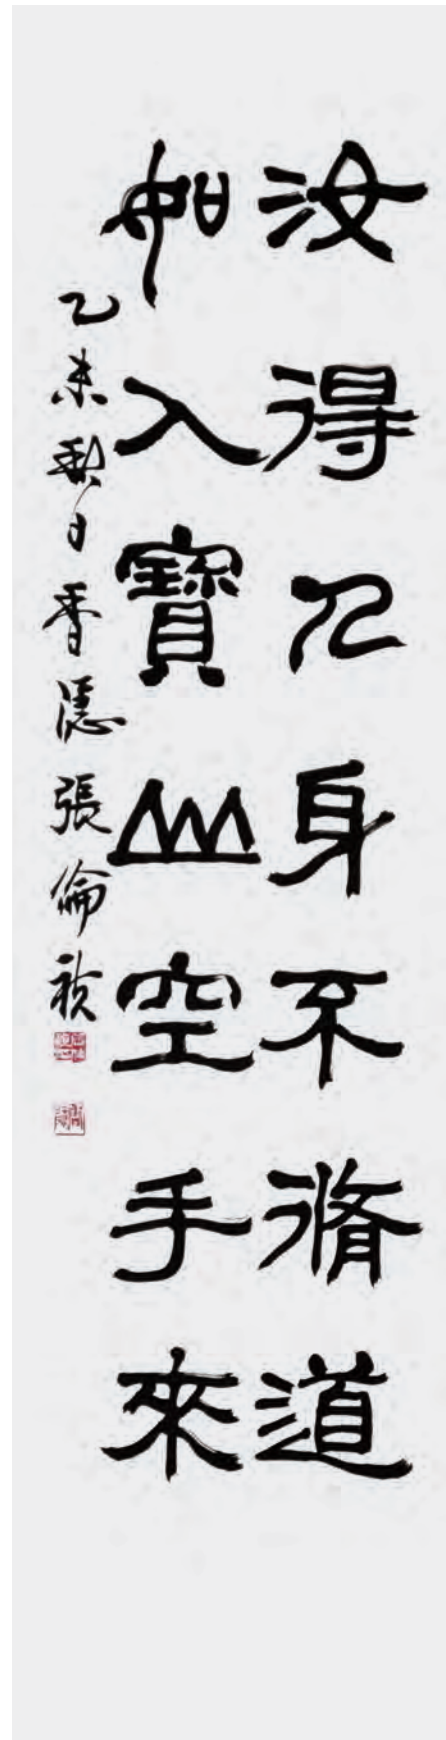 汝得人身不脩道
如入寶山空手來
乙未秋日香張倫